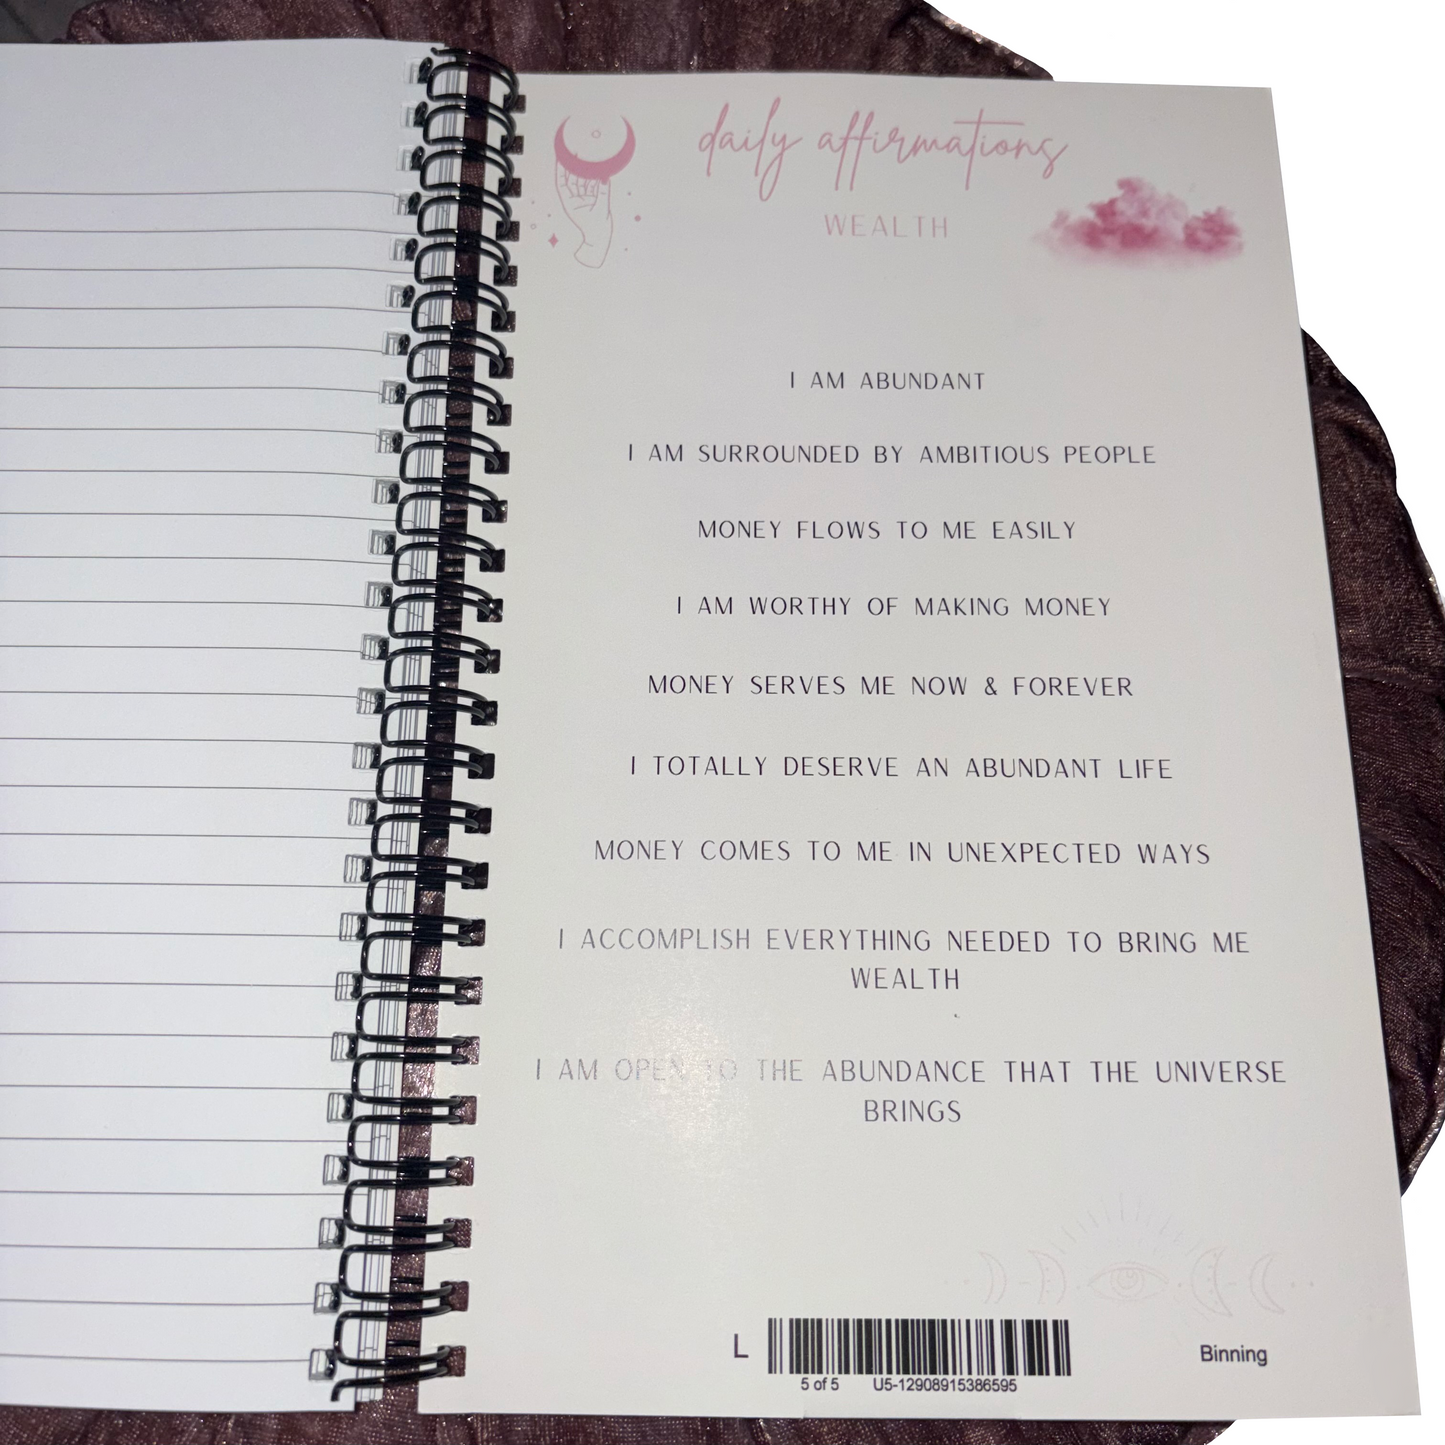 daily affirmations
WEALTH
I AM ABUNDANT
I AM SURROUNDED BY AMBITIOUS PEOPLE
MONEY FLOWS TO ME EASILY
I AM WORTHY OF MAKING MONEY
MONEY SERVES ME NOW & FOREVER
I TOTALLY DESERVE AN ABUNDANT LIFE
MONEY COMES TO ME IN UNEXPECTED WAYS
I ACCOMPLISH EVERYTHING NEEDED TO BRING ME
WEALTH
I AM OPEN TO THE ABUNDANCE THAT THE UNIVERSE
BRINGS
L
Binning
5 of 5 U5-12908915386595